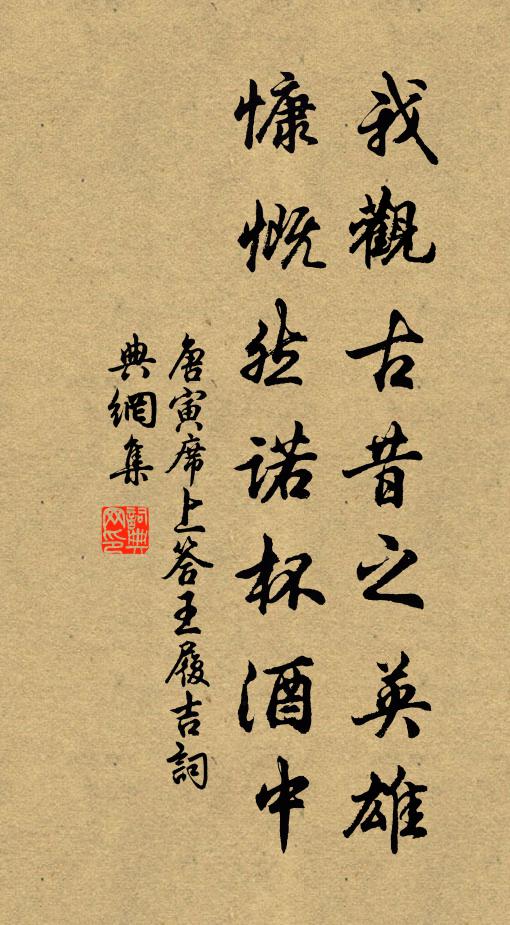 我觀古昔之英雄
慷慨然諾杯酒中
唐寅席上答王履吉詞
典網集
詞典網印